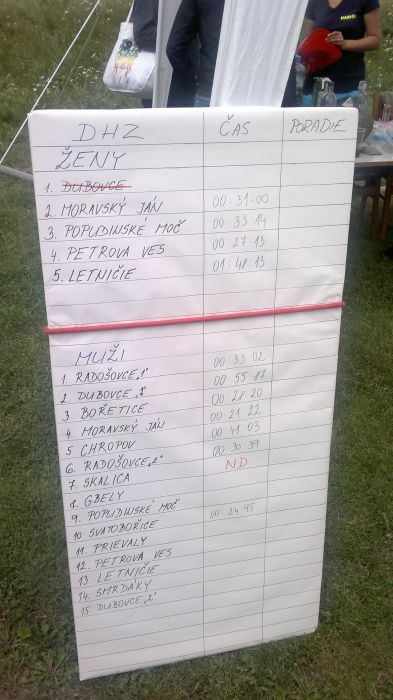 DHZ ČAS PORADIE
ŽENY
1. DUBOVCE
2. MORAVSKÝ JÁN 00:31:00
3. POPUDINSKÉ MOČ 00 33 14
4. PETROVA VES 00 27 13
5. LETNIČIE 01:48:13
MUŽI
1. RADOŠOVCE „1" 00:33 02
2. DUBOVCE „1" 00:55 87
3. BOŘETICE 00:28 20
4. MORAVSKÝ JÁN 00:21 22
5. CHROPOV 00:41 03
6. RADOŠOVCE „2" 00:30 39
7. SKALICA ND
8. GBELY
9. POPUDINSKÉ MOČ
10. SVATOBOŘICE 00:24 95
11. PRIEVALY
12. PETROVA VES
13 LETNIČIE
14. SMRDÁKY
15 DUBOVCE „2"